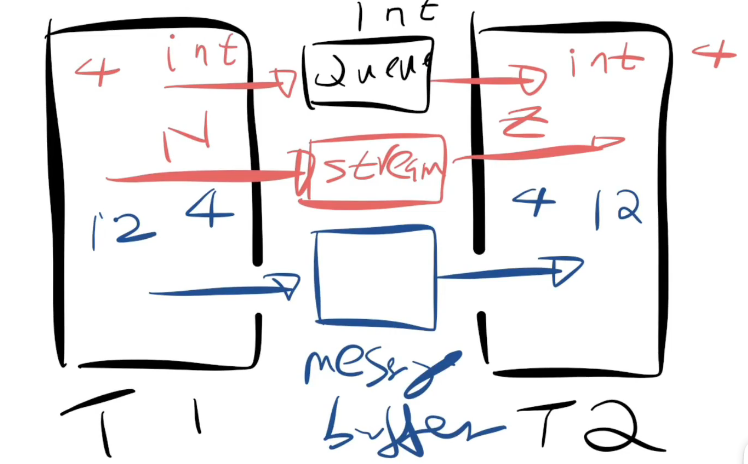 int
4 int Queue int 4
N stream Z
12 4 4 12
buffer
T1 T2